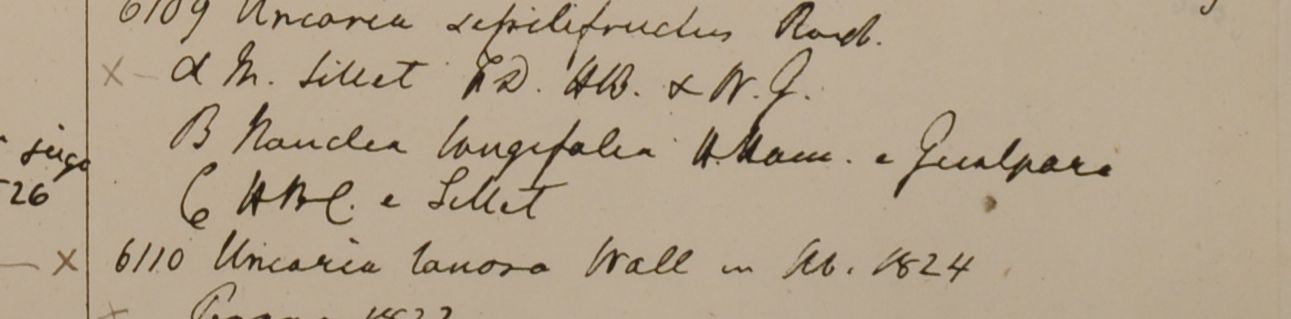 6109 Uncaria sessilifructus Roxb.
X - α M. Sillet F.D. HB. & W.G.
B Nauclea longifolia H.Ham. e Gualpara
C HBC. e Sillet
26
X 6110 Uncaria lanosa Wall in hb. 1824
1822